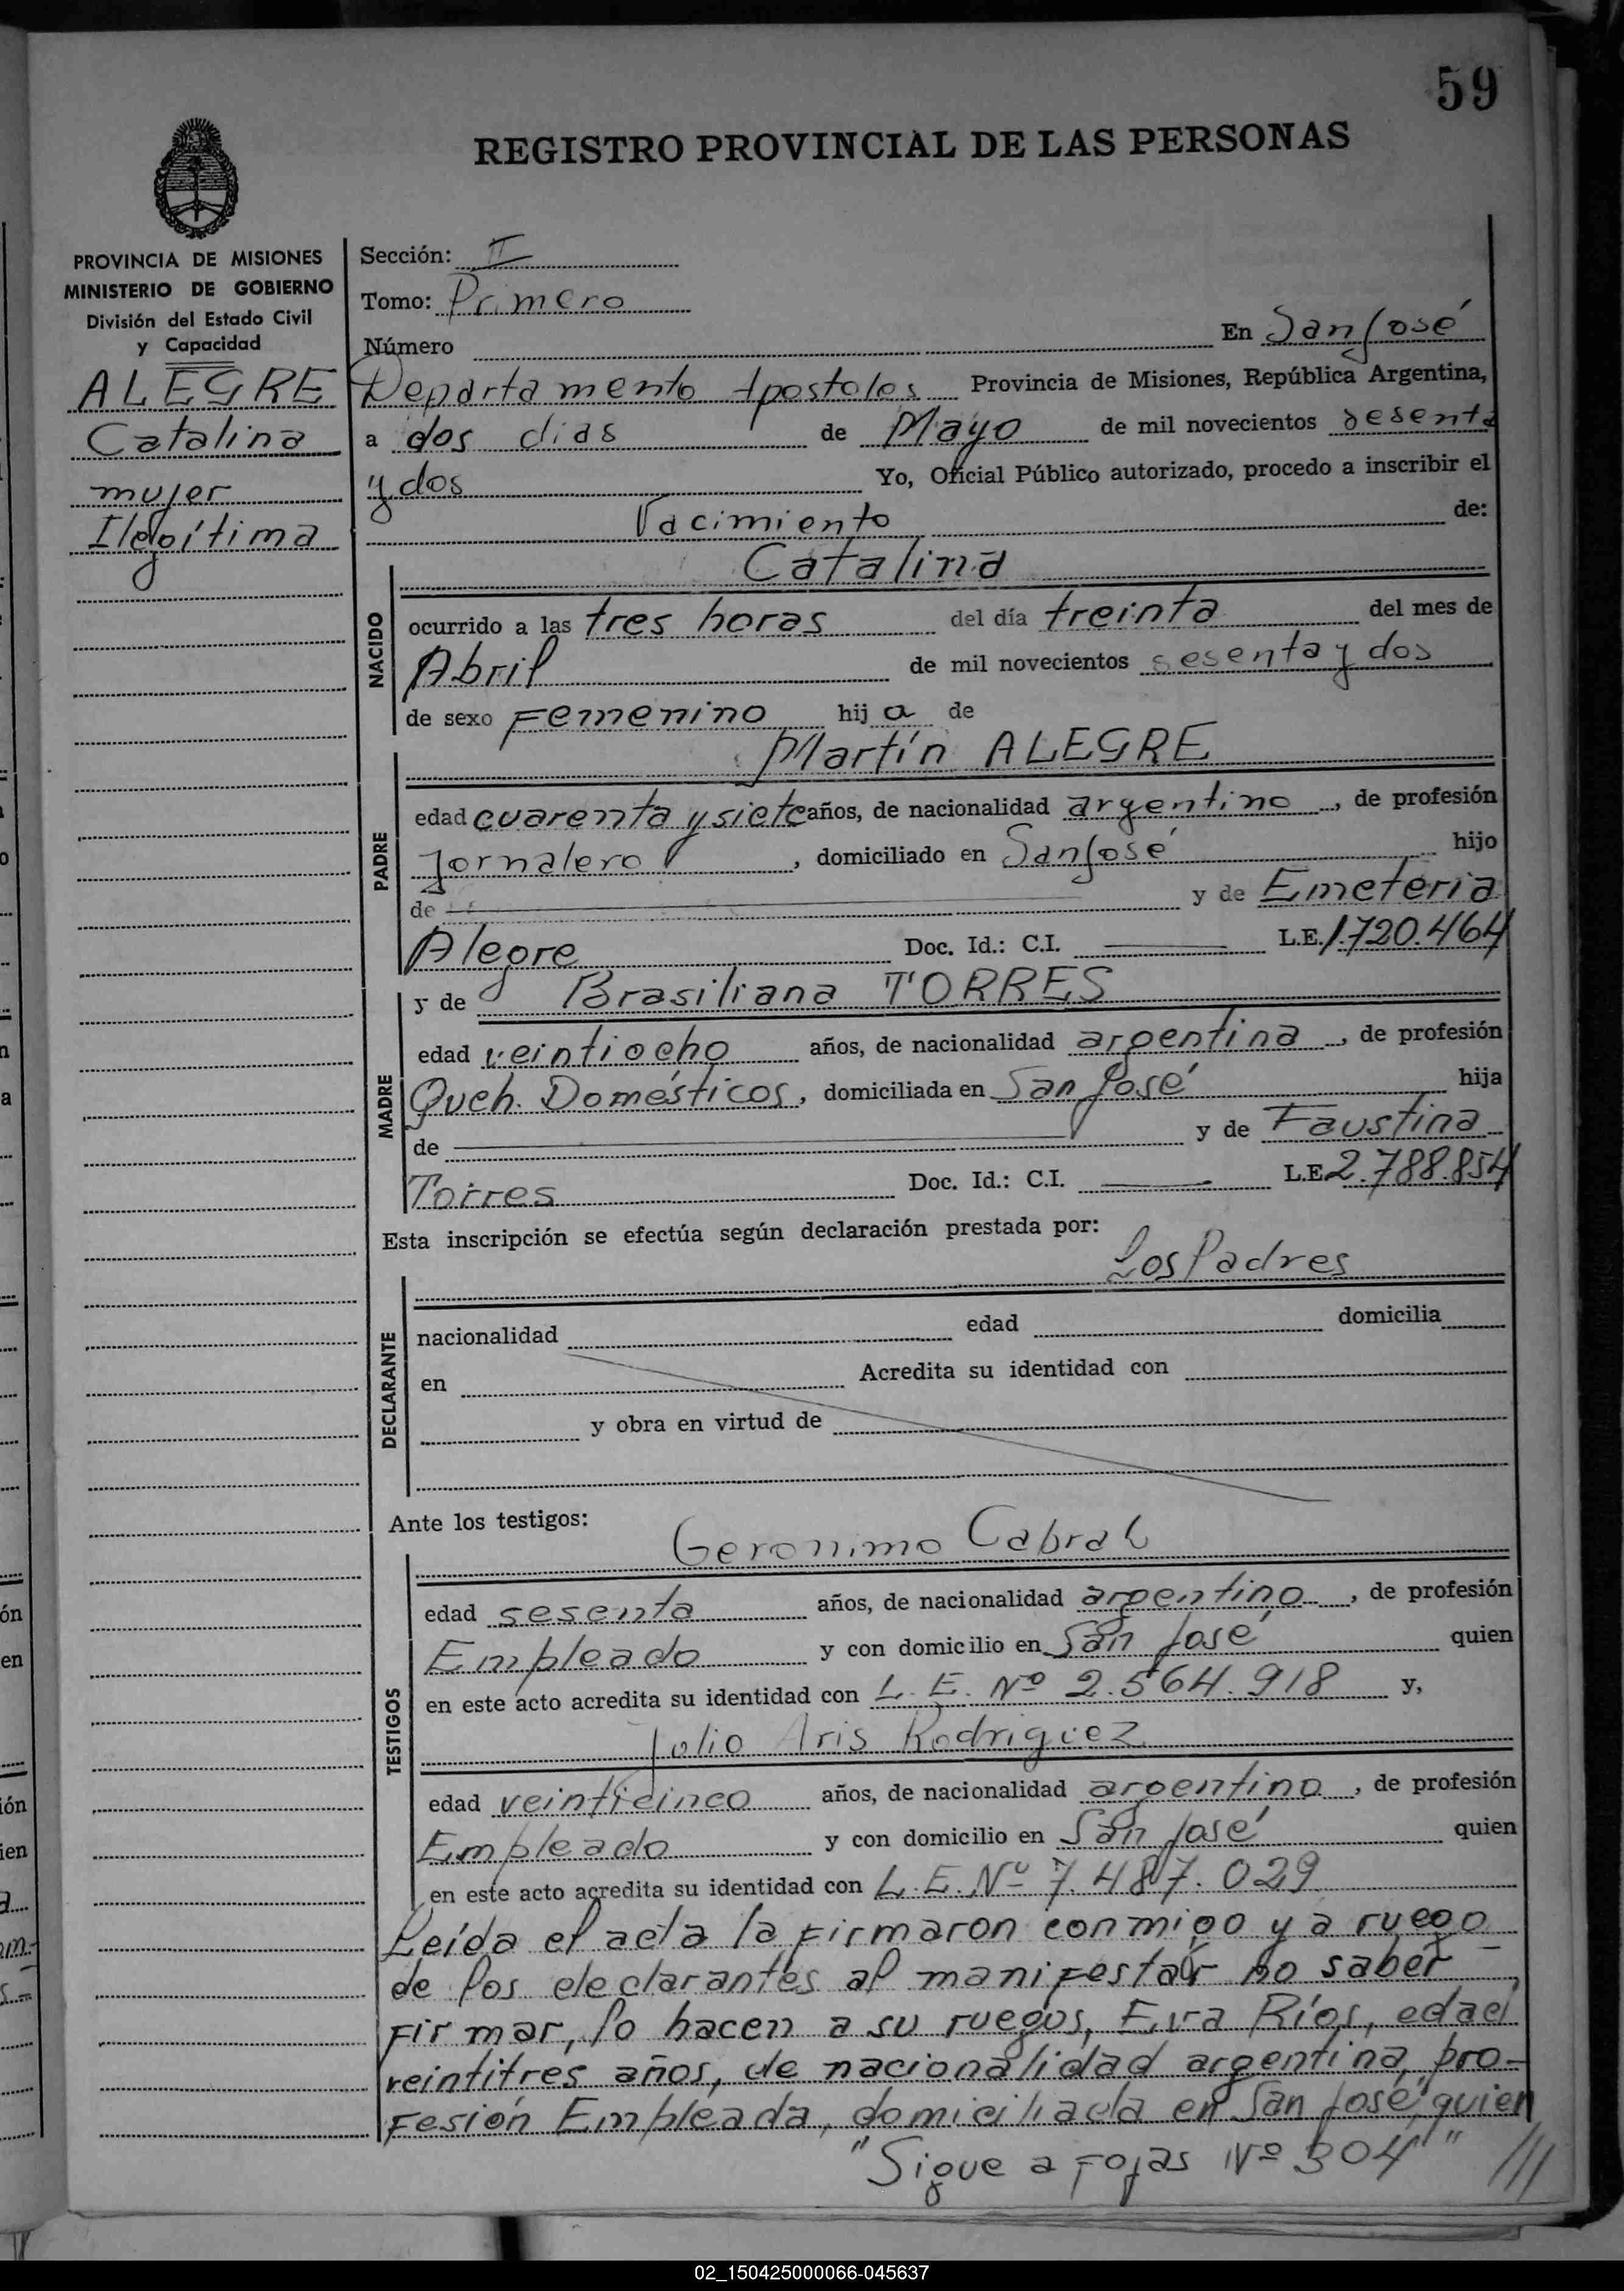 59
REGISTRO PROVINCIAL DE LAS PERSONAS
PROVINCIA DE MISIONES
MINISTERIO DE GOBIERNO
División del Estado Civil
y Capacidad
ALEGRE
Catalina
mujer
Ilegítima
Sección: II
Tomo: Primero
Número En San José
Departamento Apostoles Provincia de Misiones, República Argentina,
a dos dias de Mayo de mil novecientos sesenta
y dos Yo, Oficial Público autorizado, procedo a inscribir el
Nacimiento de:
Catalina
NACIDO
ocurrido a las tres horas del día treinta del mes de
Abril de mil novecientos sesenta y dos
de sexo Femenino hija de
Martín ALEGRE
PADRE
edad cuarenta y siete años, de nacionalidad argentino, de profesión
Jornalero, domiciliado en San José hijo
de y de Emeteria
Alegre Doc. Id.: C.I. L.E. 1.720.464
MADRE
y de Brasiliana TORRES
edad veintiocho años, de nacionalidad argentina, de profesión
Queh. Domésticos, domiciliada en San José hija
de y de Faustina
Torres Doc. Id.: C.I. L.E 2.788.854
Esta inscripción se efectúa según declaración prestada por:
Los Padres
DECLARANTE
nacionalidad edad domicilia
en Acredita su identidad con
y obra en virtud de
Ante los testigos:
Geronimo Cabral
TESTIGOS
edad sesenta años, de nacionalidad argentino, de profesión
Empleado y con domicilio en San José quien
en este acto acredita su identidad con L. E. Nº 2.564.918 y,
Julio Aris Rodriguez
edad veinticinco años, de nacionalidad argentino, de profesión
Empleado y con domicilio en San José quien
en este acto acredita su identidad con L. E. Nº 7.487.029
Leída el acta la firmaron conmigo y a ruego
de los declarantes al manifestar no saber
firmar, lo hacen a su ruegos, Eva Ríos, edad
veintitres años, de nacionalidad argentina, pro-
fesión Empleada, domiciliada en San José, quien
"Sigue a fojas Nº 304" ///
02_150425000066-045637